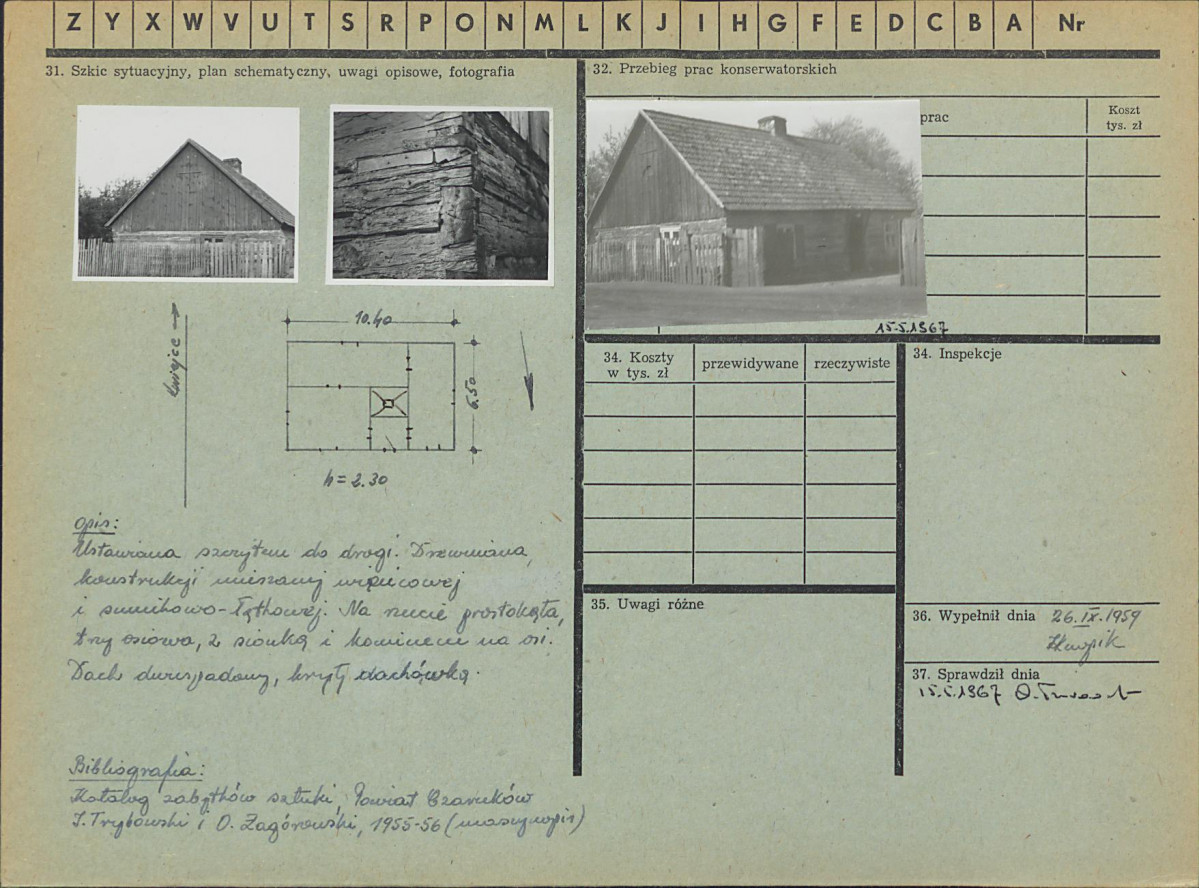 Z Y X W V U T S R P O N M L K J I H G F E D C B A Nr
31. Szkic sytuacyjny, plan schematyczny, uwagi opisowe, fotografia
10.40
6.50
h = 2.30
opis:
Ustawiona szczytem do drogi. Drewniana,
konstrukcji mieszanej wieńcowej
i sumikowo-łątkowej. Na rzucie prostokąta,
trzyosiowa, z sionką i kominem na osi.
Dach dwuspadowy, kryty dachówką.
Bibliografia:
Katalog zabytków sztuki, Powiat Czarnków
J. Trybowski i O. Zagórowski, 1955-56 (maszynopis)
32. Przebieg prac konserwatorskich
prac
Koszt
tys. zł
15.5.1967
34. Koszty
w tys. zł
przewidywane
rzeczywiste
34. Inspekcje
35. Uwagi różne
36. Wypełnił dnia 26.IX.1959
37. Sprawdził dnia
15.5.1967